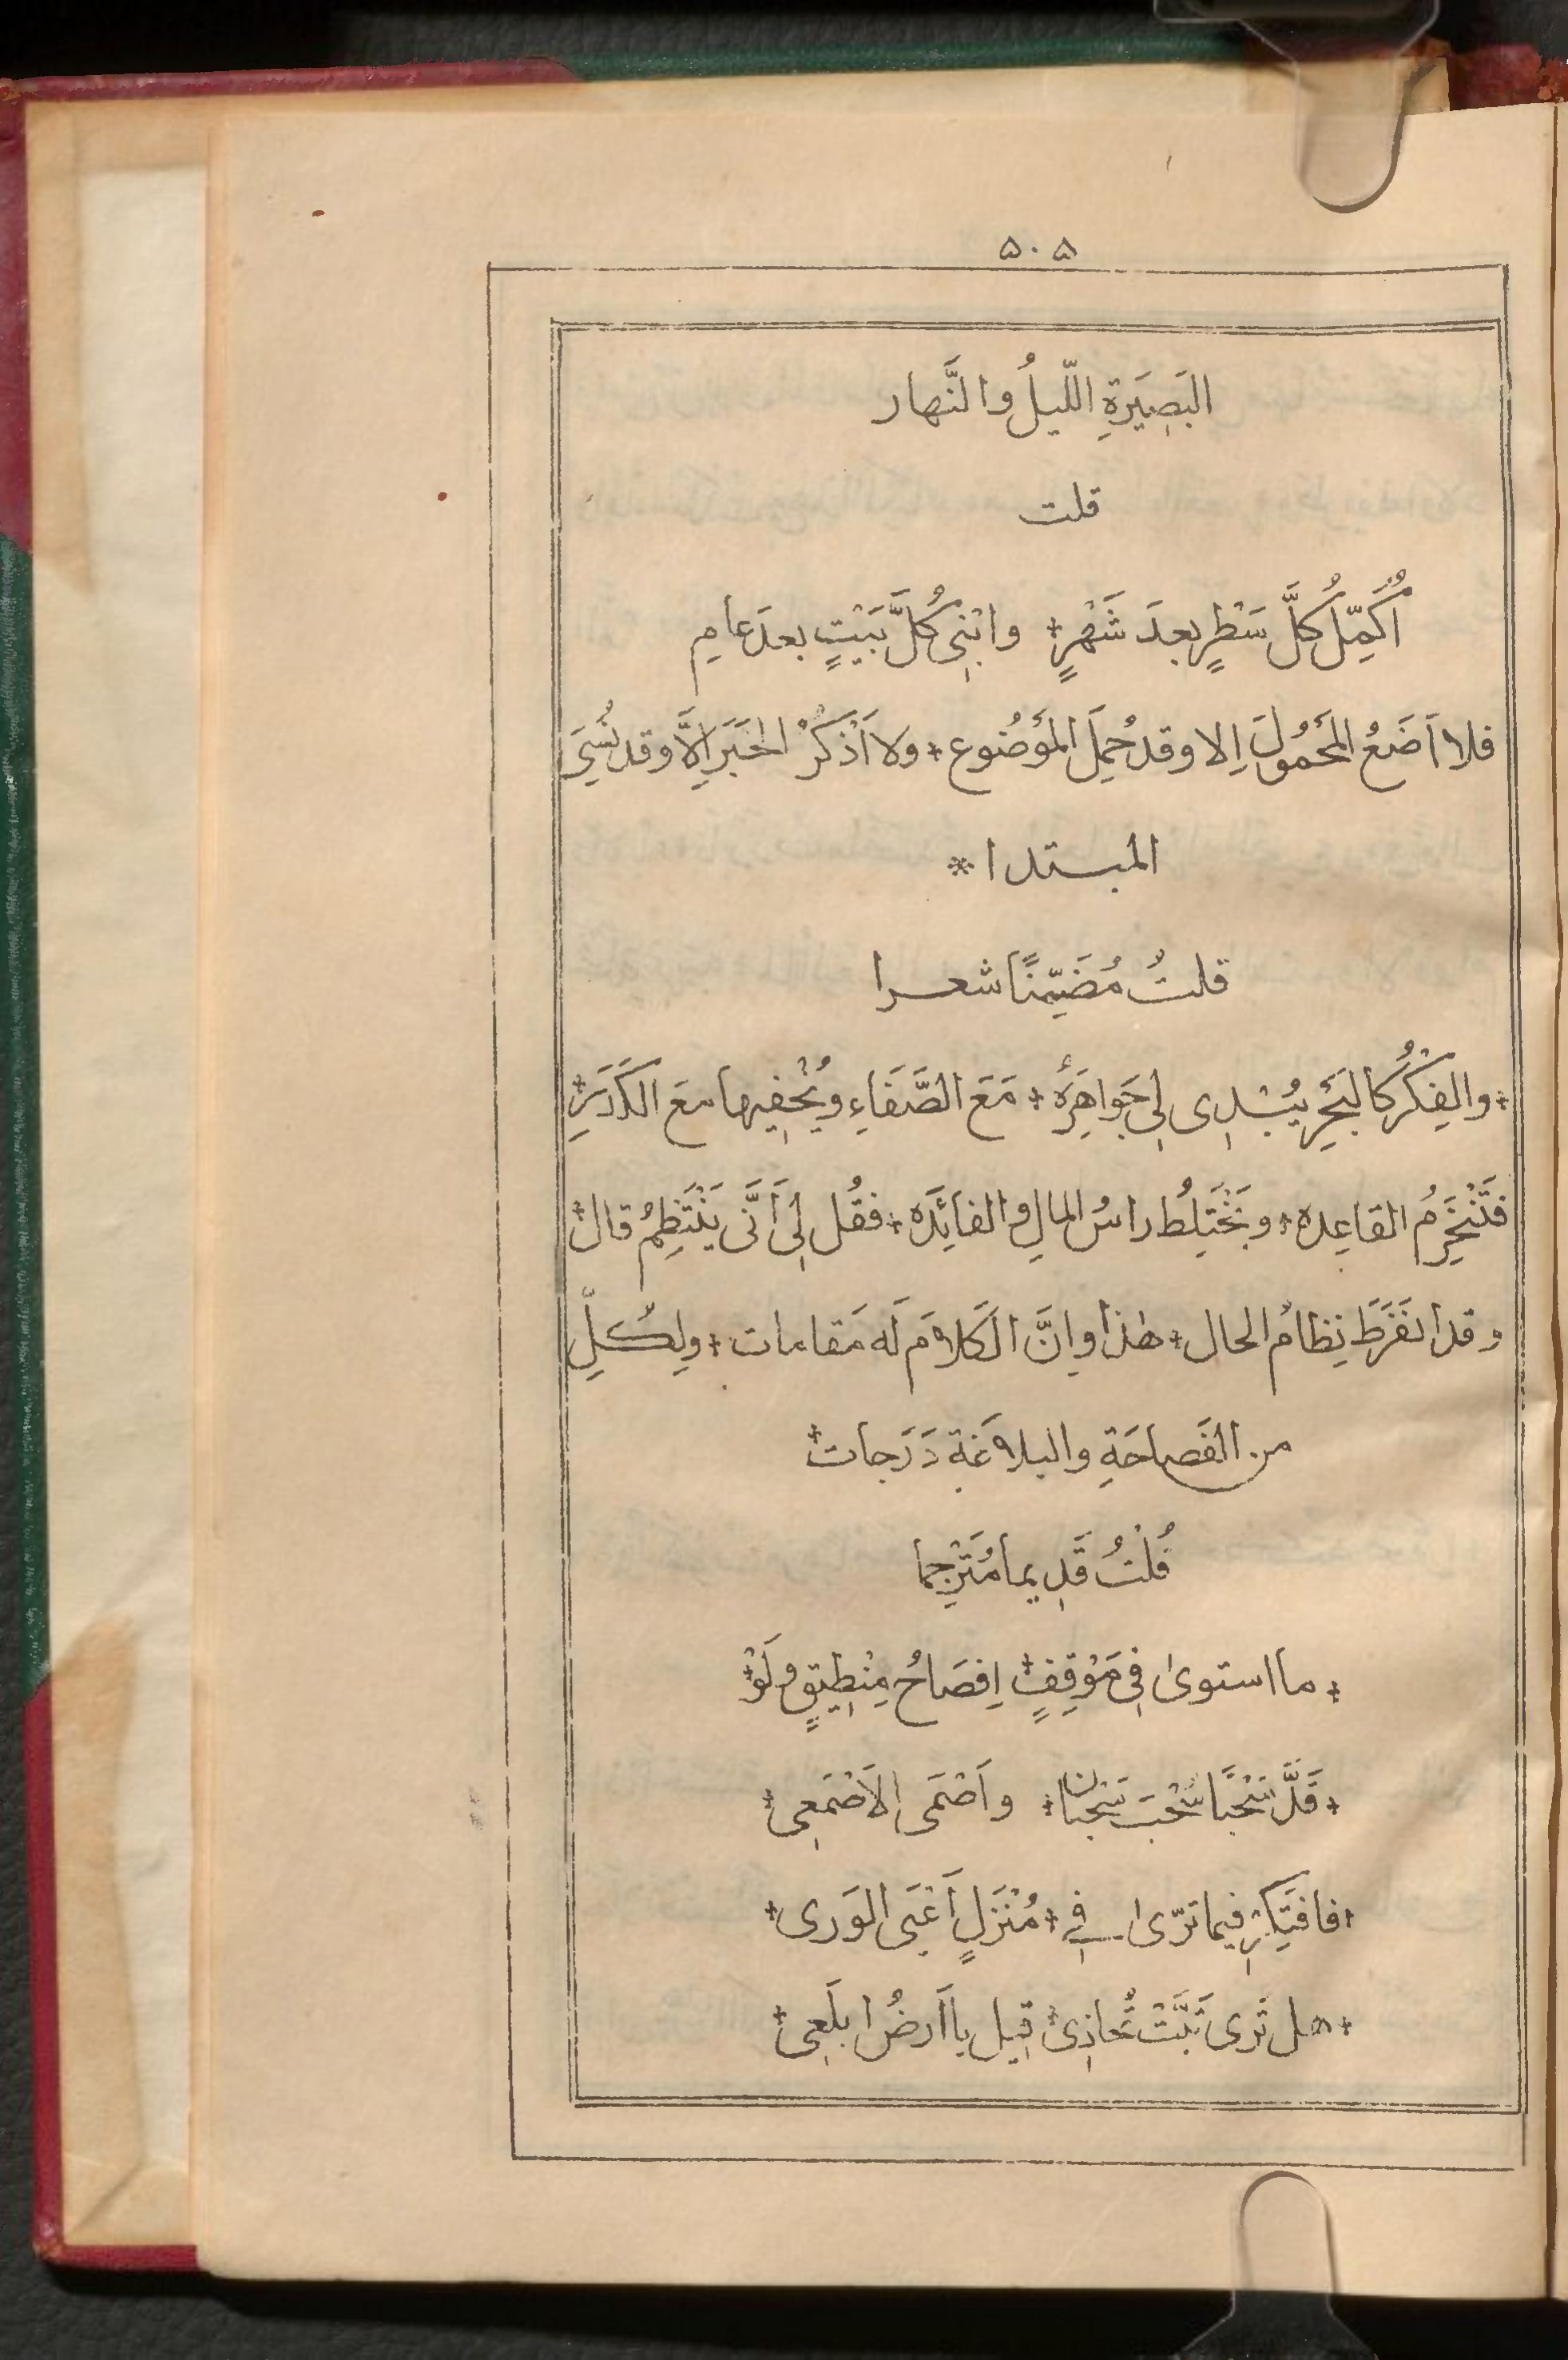 ۵۰۵
البَصِيَرةِ اللّيلُ والنَّهار
قلت
اُكَمِّلُ كُلَّ سَطْرٍ بعدَ شَهْرٍ + وابْنِى كُلَّ بَيْتٍ بعدَ عامِ
فلا اَضَعُ المَحَمُولَ اِلا وقد حُمِلَ المَوضُوع + ولا اَذْكَرُ الخَبَرَ اِلَّا وقد نُسِيَ
المبتدا *
قلتُ مُضَمِّنًا شعرا
+ والفِكْرُ كالبَحِر يُبْدِى لِى جَواهِرَهُ + مَعَ الصَّفَاءِ ويُخْفِيها معَ الكَدَرِ +
فَتَنْخَرِمُ القاعِده + وتَخْتَلِطُ راسُ المالِ والفائِدَه + فقُل لِى أَنَّى يَنْتَظِمُ قال +
وقد انفَرَطَ نِظامُ الحال + هٰذا واِنَّ الكَلامَ لَه مَقامات + ولِكُلِّ
من الفَصاحَةِ والبلاغَة دَرَجات +
قُلْتُ قَدِيما مُتَرْجِما
+ ما استوىٰ فِى مَوْقِفٍ + اِفصَاحُ مِنْطِيقٍ ولَوْ +
+ قَلَّ سَحْبًا سُحْبَ سَحْبان + واَصْمَى الاَصْمَعِى +
+ فافتَكِرْ فيما تَرّىٰ فِي + مُنْزَلٍ أَعْيَى الوَرى +
+ هل تَرى تَبَّتْ تُحاذِى + قِيل يا اَرضُ ابلَعِى +